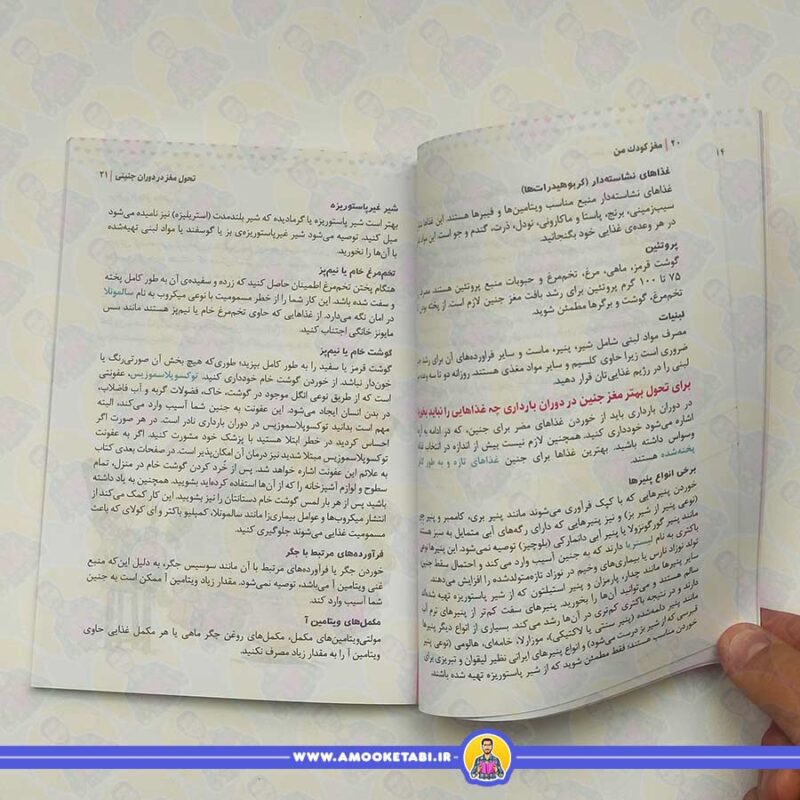 ۲۰ | مغز کودک من
۱۴
غذاهای نشاسته‌دار (کربوهیدرات‌ها)
غذاهای نشاسته‌دار منبع مناسب ویتامین‌ها و فیبرها هستند. این غذاها
سیب‌زمینی، برنج، پاستا و ماکارونی، نودل، ذرت، گندم و جو است این
در هر وعده‌ی غذایی خود بگنجانید.
پروتئین
گوشت قرمز، ماهی، مرغ، تخم‌مرغ و حبوبات منبع پروتئین هستند. مصرف
۷۵ تا ۱۰۰ گرم پروتئین برای رشد بافت مغز جنین لازم است. از پخته بودن
تخم‌مرغ، گوشت و برگرها مطمئن شوید.
لبنیات
مصرف مواد لبنی شامل شیر، پنیر، ماست و سایر فراورده‌های آن برای رشد
ضروری است زیرا حاوی کلسیم و سایر مواد مغذی هستند. روزانه دو تا سه
لبنی را در رژیم غذایی‌تان قرار دهید.
برای تحول بهتر مغز جنین در دوران بارداری چه غذاهایی را نباید
در دوران بارداری باید از خوردن غذاهای مضر برای جنین، که در ادامه به
اشاره می‌شود خودداری کنید. همچنین لازم نیست بیش از اندازه در انتخاب
وسواس داشته باشید. بهترین غذاها برای جنین غذاهای تازه و به طور
پخته‌شده هستند.
برخی انواع پنیرها
خوردن پنیرهایی که با کپک فرآوری می‌شوند مانند پنیر بری، کاممبر و پنیر
(نوعی پنیر از شیر بز) و نیز پنیرهایی که دارای رگه‌های آبی متمایل به سبز
مانند پنیر گورگونزولا یا پنیر آبی دانمارکی (بلوچیز) توصیه نمی‌شود. این پنیرها
باکتری به نام لیستریا دارند که به جنین آسیب وارد می‌کند و احتمال سقط جنین
تولد نوزاد نارس یا بیماری‌های وخیم در نوزاد تازه‌متولدشده را افزایش می‌دهند.
سایر پنیرها مانند چدار، پارمزان و پنیر استیلتون که از شیر پاستوریزه تهیه شده‌اند
سالم هستند و می‌توانید آن‌ها را بخورید. پنیرهای سفت کم‌تر از پنیرهای نرم آب
دارند و در نتیجه باکتری کم‌تری در آن‌ها رشد می‌کند. بسیاری از انواع دیگر پنیرها
مانند پنیر دلمه‌شده (پنیر سنتی یا لاکتیکی)، موزارلا، خامه‌ای، هالومی (نوعی پنیر
قبرسی که از شیر بز درست می‌شود) و انواع پنیرهای ایرانی نظیر لیقوان و تبریزی برای
خوردن مناسب هستند؛ فقط مطمئن شوید که از شیر پاستوریزه تهیه شده باشند.
تحول مغز در دوران جنینی | ۲۱
شیر غیرپاستوریزه
بهتر است شیر پاستوریزه یا گرمادیده که شیر بلندمدت (استریلیزه) نیز نامیده می‌شود
میل کنید. توصیه می‌شود شیر غیرپاستوریزه‌ی بز یا گوسفند یا مواد لبنی تهیه‌شده
با آن‌ها را نخورید.
تخم‌مرغ خام یا نیم‌پز
هنگام پختن تخم‌مرغ اطمینان حاصل کنید که زرده و سفیده‌ی آن به طور کامل پخته
و سفت شده باشد. این کار شما را از خطر مسمومیت با نوعی میکروب به نام سالمونلا
در امان نگه می‌دارد. از غذاهایی که حاوی تخم‌مرغ خام یا نیم‌پز هستند مانند سس
مایونز خانگی اجتناب کنید.
گوشت خام یا نیم‌پز
گوشت قرمز یا سفید را به طور کامل بپزید؛ طوری‌که هیچ بخش آن صورتی‌رنگ یا
خون‌دار نباشد. از خوردن گوشت خام خودداری کنید. توکسوپلاسموزیس، عفونتی
است که از طریق نوعی انگل موجود در گوشت، خاک، فضولات گربه و آب فاضلاب،
در بدن انسان ایجاد می‌شود. این عفونت به جنین شما آسیب وارد می‌کند، البته
مهم است بدانید توکسوپلاسموزیس در دوران بارداری نادر است. در هر صورت اگر
احساس کردید در خطر ابتلا هستید با پزشک خود مشورت کنید. اگر به عفونت
توکسوپلاسموزیس مبتلا شدید نیز درمان آن امکان‌پذیر است. در صفحات بعدی کتاب
به علائم این عفونت اشاره خواهد شد. پس از خرد کردن گوشت خام در منزل، تمام
سطوح و لوازم آشپزخانه را که از آن‌ها استفاده کرده‌اید بشویید. همچنین به یاد داشته
باشید پس از هر بار لمس گوشت خام دستانتان را نیز بشویید. این کار کمک می‌کند از
انتشار میکروب‌ها و عوامل بیماری‌زا مانند سالمونلا، کمپلیو باکتر و ای کولای که باعث
مسمومیت غذایی می‌شوند جلوگیری کنید.
فرآورده‌های مرتبط با جگر
خوردن جگر یا فرآورده‌های مرتبط با آن مانند سوسیس جگر، به دلیل این‌که منبع
غنی ویتامین آ می‌باشد، توصیه نمی‌شود. مقدار زیاد ویتامین آ ممکن است به جنین
شما آسیب وارد کند.
مکمل‌های ویتامین آ
مولتی‌ویتامین‌های مکمل، مکمل‌های روغن جگر ماهی یا هر مکمل غذایی حاوی
ویتامین آ را به مقدار زیاد مصرف نکنید.
WWW.AMOOKETABI.IR